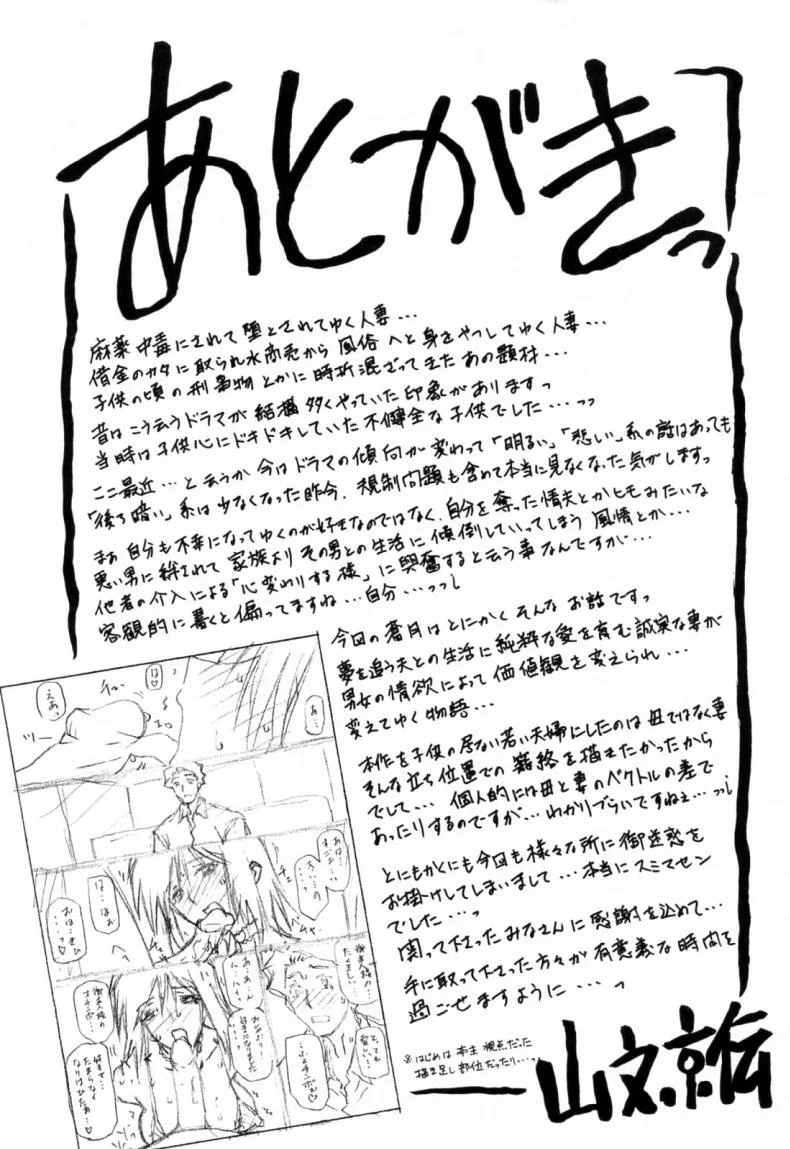 あとがきっ
麻薬中毒にされて堕とされてゆく人妻…
借金のカタに取られ水商売から風俗へと身をやつしてゆく人妻…
子供の頃の刑事物とかに時折混ざってきたあの題材…
昔はこう云うドラマが結構多くやっていた印象がありますっ
当時は子供心にドキドキしていた不健全な子供でした…っっ
ここ最近…と云うか今はドラマの傾向が変わって「明るい」「悲しい」系の話はあっても
「後ろ暗い」系は少なくなった昨今、規制問題も含めて本当に見なくなった気がしますっ
まぁ自分も不幸になってゆくのが好きなのではなく、自分を奪った情夫とかヒモみたいな
悪い男に絆されて家族よりその男との生活に傾倒していってしまう風情とか…
他者の介入による「心変わりする様」に興奮すると云う事なんですが…
客観的に書くと偏ってますね…自分…っっ
今回の蒼月はとにかくそんなお話ですっ
夢を追う夫との生活に純粋な愛を育む誠実な妻が
男女の情欲によって価値観を変えられ…
変えてゆく物語…
本作を子供の居ない若い夫婦にしたのは母ではなく妻
そんな立ち位置での籠絡を描きたかったから
でして… 個人的には母と妻のベクトルの差で
あったりするのですが…わかりづらいですねぇ…っっ
とにもかくにも今回も様々な所に御迷惑を
お掛けしてしまいまして…本当にスミマセン
でした…っ
関って下さったみなさんに感謝を込めて…
手に取って下さった方々が有意義な時間を
過ごせますように…っ
※はじめは本主視点だった
描き足し部位だったり…っ
山文京伝
は♡
えあっ
ツー
あ…
は…
はお
とっても